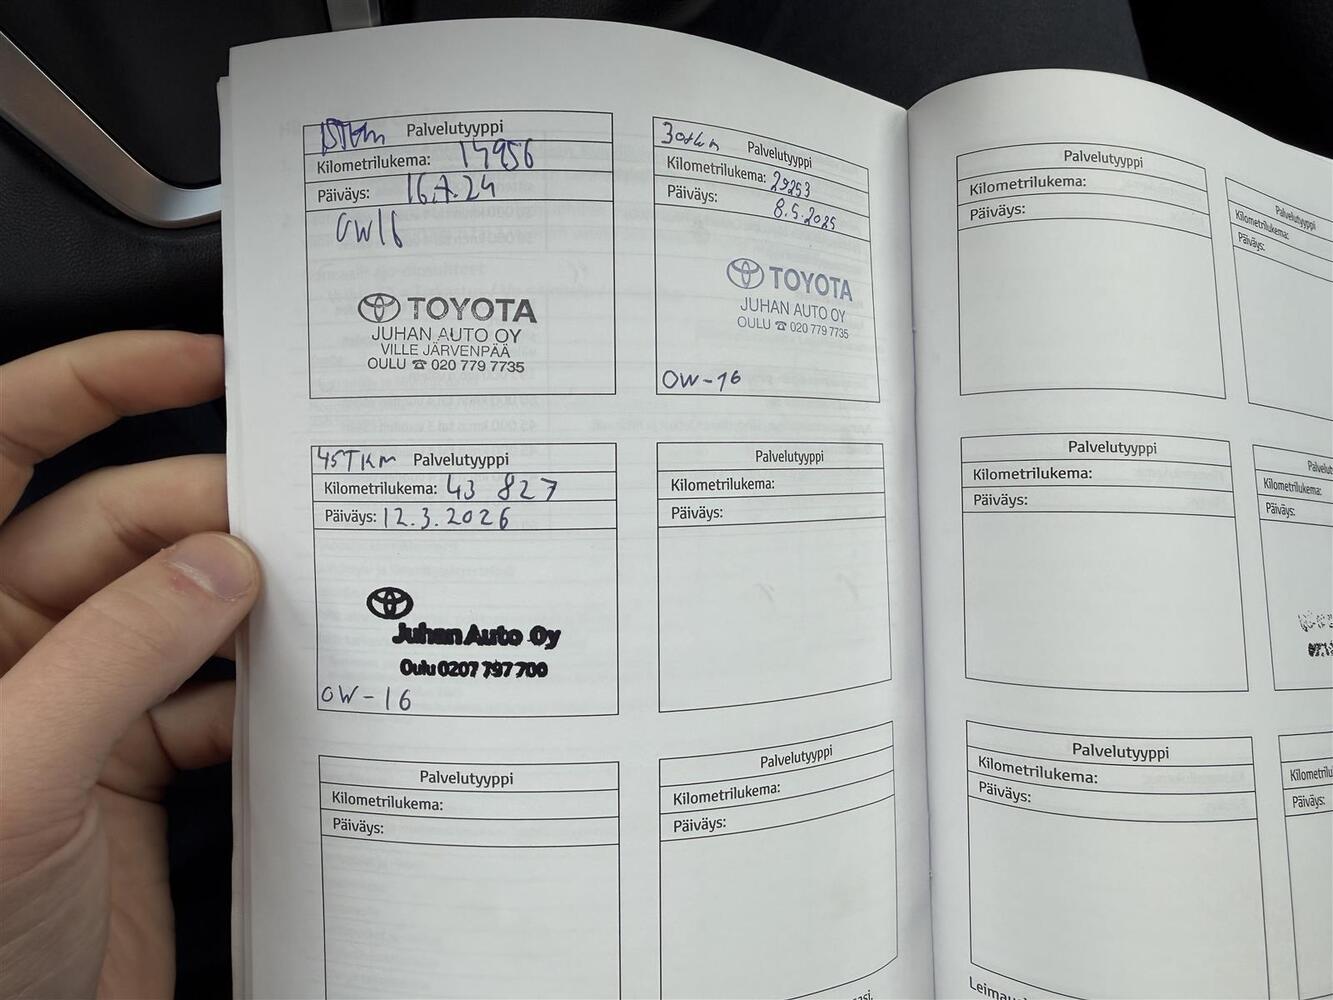 15Tkm Palvelutyyppi
Kilometrilukema: 14956
Päiväys: 16.7.24
OW16
TOYOTA
JUHAN AUTO OY
VILLE JÄRVENPÄÄ
OULU ☎ 020 779 7735
30tkm Palvelutyyppi
Kilometrilukema: 29253
Päiväys: 8.5.2025
TOYOTA
JUHAN AUTO OY
OULU ☎ 020 779 7735
OW-16
45TKm Palvelutyyppi
Kilometrilukema: 43 827
Päiväys: 12.3.2026
Juhan Auto Oy
Oulu 0207 797 700
OW-16
Palvelutyyppi
Kilometrilukema:
Päiväys:
Palvelutyyppi
Kilometrilukema:
Päiväys:
Palvelutyyppi
Kilometrilukema:
Päiväys:
Palvelutyyppi
Kilometrilukema:
Päiväys:
Palvelutyyppi
Kilometrilukema:
Päiväys:
Palvelutyyppi
Kilometrilukema:
Päiväys:
Kilometrilukema:
Päiväys:
Palvelutyyppi
Kilometrilukema:
Päiväys:
Päiväys: